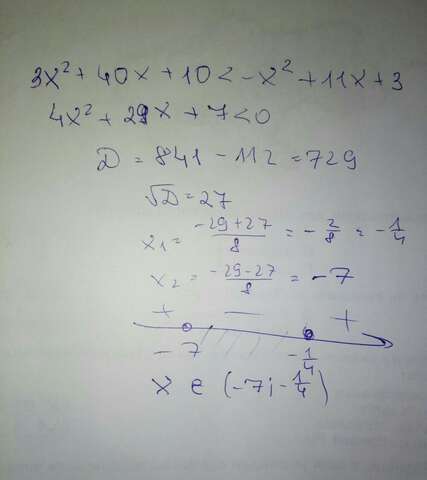 3x² + 40x + 10 < -x² + 11x + 3
4x² + 29x + 7 < 0
D = 841 - 112 = 729
√D = 27
x₁ = (-29+27)/8 = -2/8 = -1/4
x₂ = (-29-27)/8 = -7
+ - +
-7 -1/4
x ∈ (-7; -1/4)